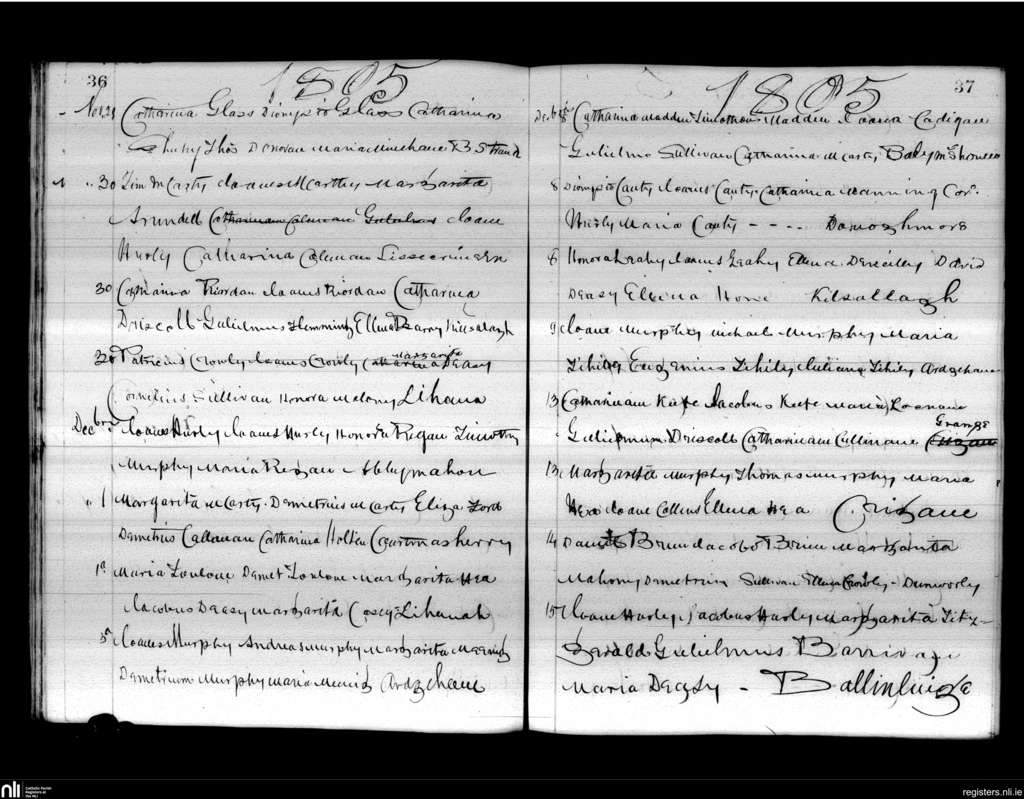 36
1805
Nov. 28 Catharina Glass Dionysio Glass Catharina
Thos Donovan Maria Minehane B Strand
" 30 Tim McCarty Joanes McCarthy Margarita
Arundell Catharinam Colman Joane
Hurly Catharina Colman
30 Catharina Riordan Joanes Riordan Catharina
Driscoll Gulielmus Flemming Ellena Barry Kilsalagh
30 Patricius Crowly Joanes Crowly Catharina Margarita Deasy
Cornelius Sullivan Honora Malony Lihana
Decbr Joanes Hurly Joanes Hurly Honora Regan Timothy
Murphy Maria Regan Abbymahon
" 1 Margarita McCarty Demetrius McCarty Eliza Ford
Demetrius Callanan Catharina Holten Courtmasherry
1a Maria Toulone Demet Toulone Margarita Hea
Jacobus Deasy Margarita Casey Lihanah
5a Joanes Murphy Andreas Murphy Margarita
Demetrium Murphy Maria Ardgehane
1805
37
Decb Catharina Madden Timotheus Madden Joanna Cadigan
Gulielmo Sullivan Catharina McCarty
8 Dionysio Canty Joanes Canty Catharina Manning Cor.
Hurly Maria Canty - - - - Donoghmore
8 Honora Leahy Joanes Leahy Ellena David
Deasy Ellena Kilsallagh
9 Joane Murphy Michael Murphy Maria
Fehily Eugenius Fehily Juliana Fehily Ardgehane
13 Catharinam Keefe Jacobus Keefe Maria Loonane
Grange
Gulielmum Driscoll Catharinam Cullinane
13 Margarita Murphy Thomas Murphy Maria
Hea Joane Collins Ellena Hea
14 Jacobo Margarita
Mahony Demetrius Sullivan Crowly - Dunworly
15 Joane Hurley Jacobus Hurley Margarita Fitz-
Gerald Gulielmus Barri
Maria Deasy - Ballinluige
nli
Catholic Parish
Registers at
the NLI
registers.nli.ie